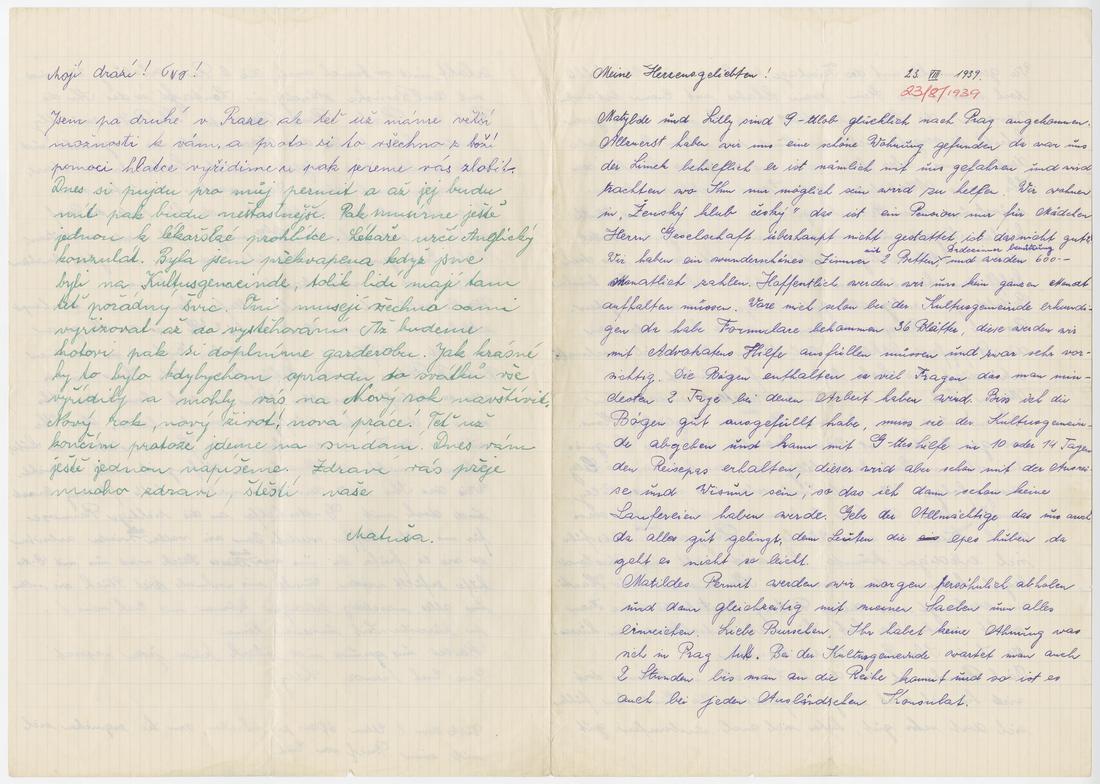 Moji drazí!
Jsem po druhé v Praze ale teť už máme větší
možnosti k vám, a proto si to všechno z boží
pomoci hlatce vyřídíme a pak pereme vás zlobit.
Dnes si pujdu pro můj permit a až jej budu
mít pak budu nešťastnější. Pak musíme ještě
jednou k lékařské prohlítce. Lékaře určí Anglický
konzulát. Byla jsem překvapena když jsme
byli na Kultusgemeinde, tolik lidí mají tam
teť pořádný švic. Tní musejí všechno sami
vyřizovat až do vystěhování. Až budeme
hotovi pak si doplníme garderobu. Jak krásné
by to bylo kdybychom opravdu do svátků vše
vyřídily a mohly vás na Nový rok navštívit.
Nový rok, nový život, nová práce! Teť už
končím protože jdeme na snídani. Dnes vám
ještě jednou napíšeme. Zdraví vás přeje
mnoho zdraví, štěstí vaše
Matuša.
Meine Herzensgeliebten! 23 VIII 1939.
23/8/1939
Matylde und Lilly sind G-ttlob glücklich nach Prag angekommen.
Allererst haben wir uns eine schöne Wohnung gefunden da war uns
der Limek behilflich er ist nämlich mit uns gefahren und wird
trachten wo Ihm nur möglich sein wird zu helfen. Wir wohnen
in „Ženský klub český" das ist ein Pension nur für Mädchen
Herrn Geselschaft überhaupt nicht gestattet ist das nicht gut?
Wir haben ein wunderschönes Zimmer 2 Betten mit Badezimmer benützung und werden 600-
Monatlich zahlen. Hoffentlich werden wir uns kein ganzen Monat
aufhalten müssen. War mich schon bei der Kultusgemeinde erkundi-
gen da habe Formulare bekommen 36 Blätter, diese werden wir
mit Advokatens Hilfe ausfüllen müssen und zwar sehr vor-
sichtig. Die Bögen enthalten so viel Fragen das man min-
desten 2 Tage bei denen Arbeit haben wird. Bis ich die
Bögen gut ausgefüllt habe, muss sie der Kultusgemein-
de abgeben und kann mit G-ttes hilfe in 10 oder 14 Tagen
den Reisepas erhalten, dieser wird aber schon mit der Ausrei-
se und Wisum sein, so das ich dann schon keine
Laufereien haben werde. Gebe der Allmächtige das uns auch
da alles gut gelingt, dem Leuten die epes hüben da
geht es nicht so leicht.
Matildes Permit werden wir morgen persöhnlich abholen
und dann gleichzeitig mit meinen Sachen um alles
einreichen. Liebe Burschen, Ihr habet keine Ahnung was
sich in Prag tut. Bei der Kultusgemeinde wartet man auch
2 Stunden bis man an die Reihe kommt und so ist es
auch bei jeden Ausländschen Konsulat.